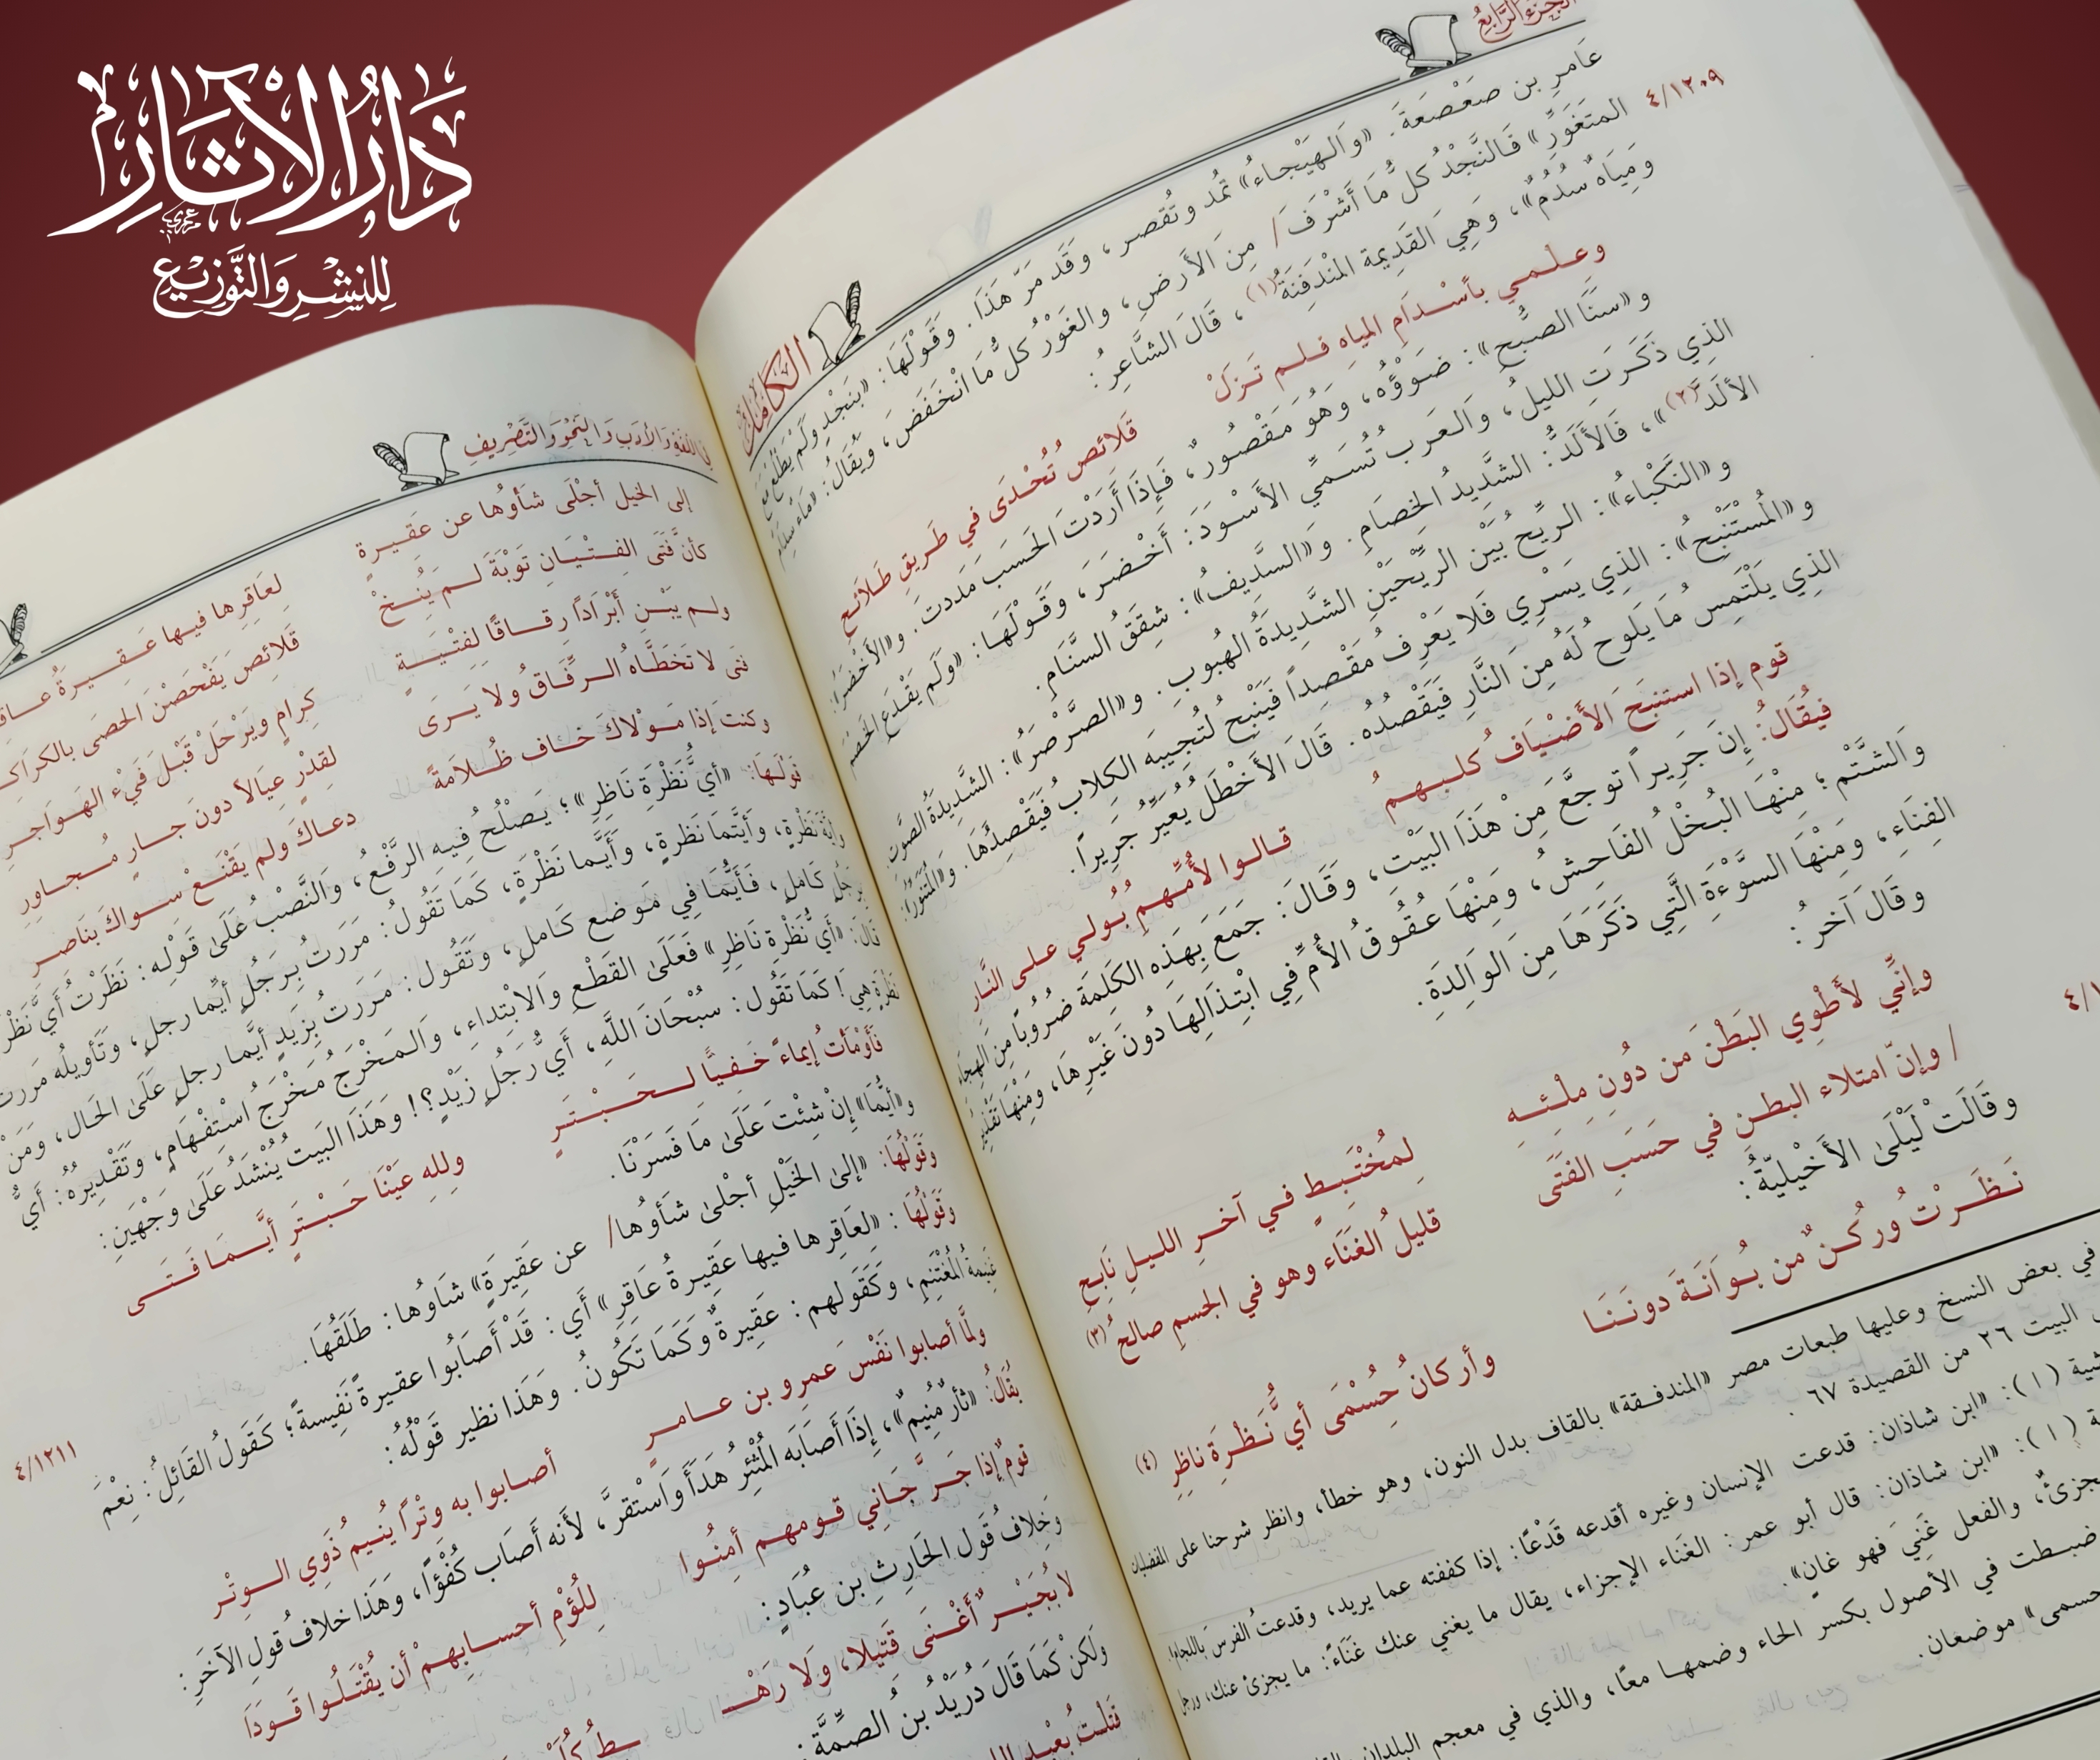 دَارُ الآثَارِ
لِلنَّشْرِ وَالتَّوْزِيْعِ
الجزء الرَّابِعُ
الكَامِلُ
عَامرِ بن صَعْصَعَةَ. «وَالهَيْجاءُ» تُمد وتُقصر، وَقَد مَرَّ هَذَا. وَقَوْلُهَا: «بِنَجْدٍ وَلَمْ يَطْلُعْ مَعَ
٤/١٢٠٩
المتَغَوِّرِ» فَالنَّجْدُ كلُّ مَا أَشْرَفَ/ مِنَ الأَرضِ، والغَوْرُ كلُّ مَا انْخَفَضَ، ويُقالُ: «مَاء سُدُمٌ
وَمِيَاه سُدُمٌ»، وَهِيَ القَدِيمة المُنْدَفِنَةُ(١)، قَالَ الشَّاعِرُ:
وعـلـمـي بأسْـدَامِ المياهِ فـلـم تَـزَلْ قَلائصُ تُحْدَى في طَرِيقٍ طَلائع
و«سَنَا الصبُّحِ»: ضَوْؤُه، وَهُوَ مَقْصُورٌ، فَإِذَا أَرَدْتَ الحَسَبَ مَددت. و«الأَخْضَرُ»:
الذِي ذَكَرَتِ الليلُ، وَالعَرب تُسَمِّي الأَسْوَدَ: أَخْضَرَ، وَقَوْلُهَا: «وَلَم يَقْدَعِ الخَصْمَ
الألَدَّ(٢)»، فَالأَلَدُّ: الشَّدِيدُ الخِصَامِ. و«السَّدِيفُ»: شِقَقُ السَّنَامِ.
و«النَّكْبَاءُ»: الرِّيحُ بَيْن الرِّيْحَيْنِ الشَّدِيدَةُ الهُبوبِ. و«الصَّرْصَرُ»: الشَّدِيدَةُ الصَّوْتِ
و«المُسْتَنْبِحُ»: الذِي يَسْرِي فَلا يَعْرِفُ مَقْصِداً فَيَنْبِحُ لتُجِيبَه الكلابُ فَيَقْصِدُهَا. و«المُتَنَوِّرُ»:
الذِي يَلْتَمِسُ مَا يَلُوح لَهُ مِنَ النَّارِ فَيَقْصُدُه. قَالَ الأَخْطَلُ يُعَيِّرُ جَرِيراً:
قوم إذا استنبَحَ الأضْيَافُ كلـبـهـمُ قـالـوا لأُمِّـهـمِ بُـولـي عـلـى النَّـار
فيُقَالُ: إِنَ جَرِيراً توجَّعَ مِنْ هَذَا البَيْت، وَقَالَ: جَمَعَ بِهَذِهِ الكَلِمَة ضُرُوباً مِنَ الهِجَاءِ
وَالشَّتْم؛ مِنْهَا البُخْلُ الفَاحِشُ، وَمِنْهَا عُقُوقُ الأُمِّ فِي ابْتِذَالِهَا دُونَ غَيْرِهَا، وَمِنْهَا تَقْذِيرُ
الفِنَاءِ، ومَنْهَا السَّوْءَةِ الَّتِي ذَكَرَهَا مِنَ الوَالِدَةِ.
وَقَالَ آخرُ:
وإنِّي لأَطْوِي البَطْنَ من دُونِ مِلْـئِـهِ لِمُخْتَبِـطٍ فـي آخـرِ الليـلِ نَابِحِ
/ وإنّ امتلاء البطـنِ في حَسَبِ الفتَى قليلُ الغنَاء وهو في الجسمِ صالحُ(٣)
وقَالَتْ لَيْلَىٰ الأَخْيلِيَّةُ:
نَـظَـرْتُ ورُكْـنٌ من بُـوَانَـةَ دونَـنَـا وأركانُ حُسْمَى أيُّ نَـظْـرَةِ ناظِرِ (٤)
في بعض النسخ وعليها طبعات مصر «المندفـقة» بالقاف بدل النون، وهو خطأ، وانظر شرحنا على المفضليات
البيت ٢٦ من القصيدة ٦٧ .
(١): «ابن شاذان: قدعت الإنسان وغيره أقدعه قَدْعًا: إذا كففته عما يريد، وقدعتُ الفرسَ باللجام.
(١): «ابن شاذان: قال أبو عمر: الغَنَاء الإجزاء، يقال ما يغني عنك غَنَاءً: ما يجزئ عنك، ورجل
والفعل غَنِيَ فهو غانٍ».
ضبـطت في الأصول بكسر الحاء وضمهـا معًا، والذي في معجم البلدان
موضعان.
في اللُّغَةِ وَالأَدَبِ وَالنَّحْوِ وَالتَّصْرِيفِ
إلى الخيل أجْلَى شَأوُها عن عَقِيـرةٍ لِعَاقِرِها فيـها عَـقِـيـرةُ
كأنَّ فَتَى الفِـتْـيَـانِ تَوْبَةَ لـم يُـنِـخْ قَلائصَ يَفْحَصْنَ الحَصَى بالكَراكِـ
ولـم يَبْـنِ أَبْرَادًا رِقـاقًا لفتْـيَـةٍ كِرامٍ ويَرْحَلْ قَبْلَ فَيْءِ الهَـوَاجـرِ
فتى لا تَخَطَّاه الـرِّفَـاقُ ولا يَـرَى لقِدْرٍ عِيَالاً دونَ جـارٍ مُـجـاوِرِ
وكنتَ إذا مَـوْلاكَ خـاف ظُـلامَةً دعـاكَ ولم يَقْنَـعْ سـواكَ بنَاصـرِ
قَولهَا: «أيَُّ نَظْرَةِ نَاظِرِ»؛ يَصْلُحُ فِيهِ الرَّفْعُ، وَالنَّصْبُ عَلَىٰ قَوْلِه: نَظَرْتُ أَيَّ
نَظْرَةٍ، وَأيتَّمَا نَظرةٍ، وَأَيَّما نَظْرَةٍ، كَمَا تَقُولُ: مَرَرتُ بِرَجُلٍ أيِّما رجلٍ، وَتَأوِيلُه مَررت
بِرَجُلٍ كَاملٍ، فَأَيُّمَا فِي مَوضع كَاملٍ، وتَقُول: مَررتُ بِزَيدٍ أيَّما رجلٍ عَلَىٰ الحَال، وَمَنْ
قَالَ: «أَيُّ نَظْرةِ نَاظِرِ» فَعَلَىٰ القَطْعِ وَالابْتِداءِ، وَالمَخْرَج مَخْرَجُ اسْتِفْهَامٍ، وَتَقْدِيرُهُ: أَيُّ
نَظْرَةٍ هِي! كَمَا تَقُول: سُبْحَانَ اللَّهِ، أَيُّ رَجُلٍ زَيْدٍ؟! وَهَذَا البَيت يُنْشَدُ عَلَىٰ وَجْهَينِ:
فَأَوْمَأتُ إيمَاءً خَـفِـيَّـا لـحَـبْـتَـرٍ وللهِ عَيْنَا حَـبْـتـرٍ أيَّـمـا فَـتَـى
و«أيَّمَا» إنْ شئْتَ عَلَىٰ مَا فَسَّرْنَا.
وَقَوْلُهَا: «إلىٰ الخَيْلِ أجْلىٰ شَأَوُها/ عن عَقِيرَةٍ» شَأوُها: طَلَقُهَا.
٤/١٢١١
وَقَوْلُهَا: «لعَاقِرِها فيها عَقِيرةُ عَاقِرِ» أَي: قَدْ أَصَابُوا عقيرةً نَفِيسةً؛ كَقَولُ القَائِلِ: نِعْمَ
غَنِيمةُ المُغْتَنِمِ، وَكَقَولهم: عَقِيرةٌ وكَمَا تَكُونُ. وَهَذَا نظير قَوْلُهُ:
ولمَّا أصابوا نَفْسَ عَمرِو بن عـامـرٍ أصـابوا به وِتْراً يُنـيمُ ذَوِي الـوِتْـر
يُقَالُ: «ثأرٌ مُنِيمٌ»، إِذَا أَصَابَه المُثْئِرُ هَدَأَ وَاسْتقرَّ، لأَنه أَصَاب كُفْؤًا، وَهَذَا خلافُ قولِ الآخَرِ:
قومٌ إذا جَـرَّ جَـانِي قـومهـم أمِنُـوا لِلُؤْمِ أحسـابِهِـمْ أن يُقْتَـلُـوا قَـوَدَا
وَخِلافُ قَول الحَارِثِ بن عُبَادٍ:
لا بُجَيْـرٌ أَغْـنَـى قَتِيلا، ولَا رَهْـ ـطُ
وَلَكنْ كَمَا قَالَ دُرَيْدُ بنُ الصمَّة: